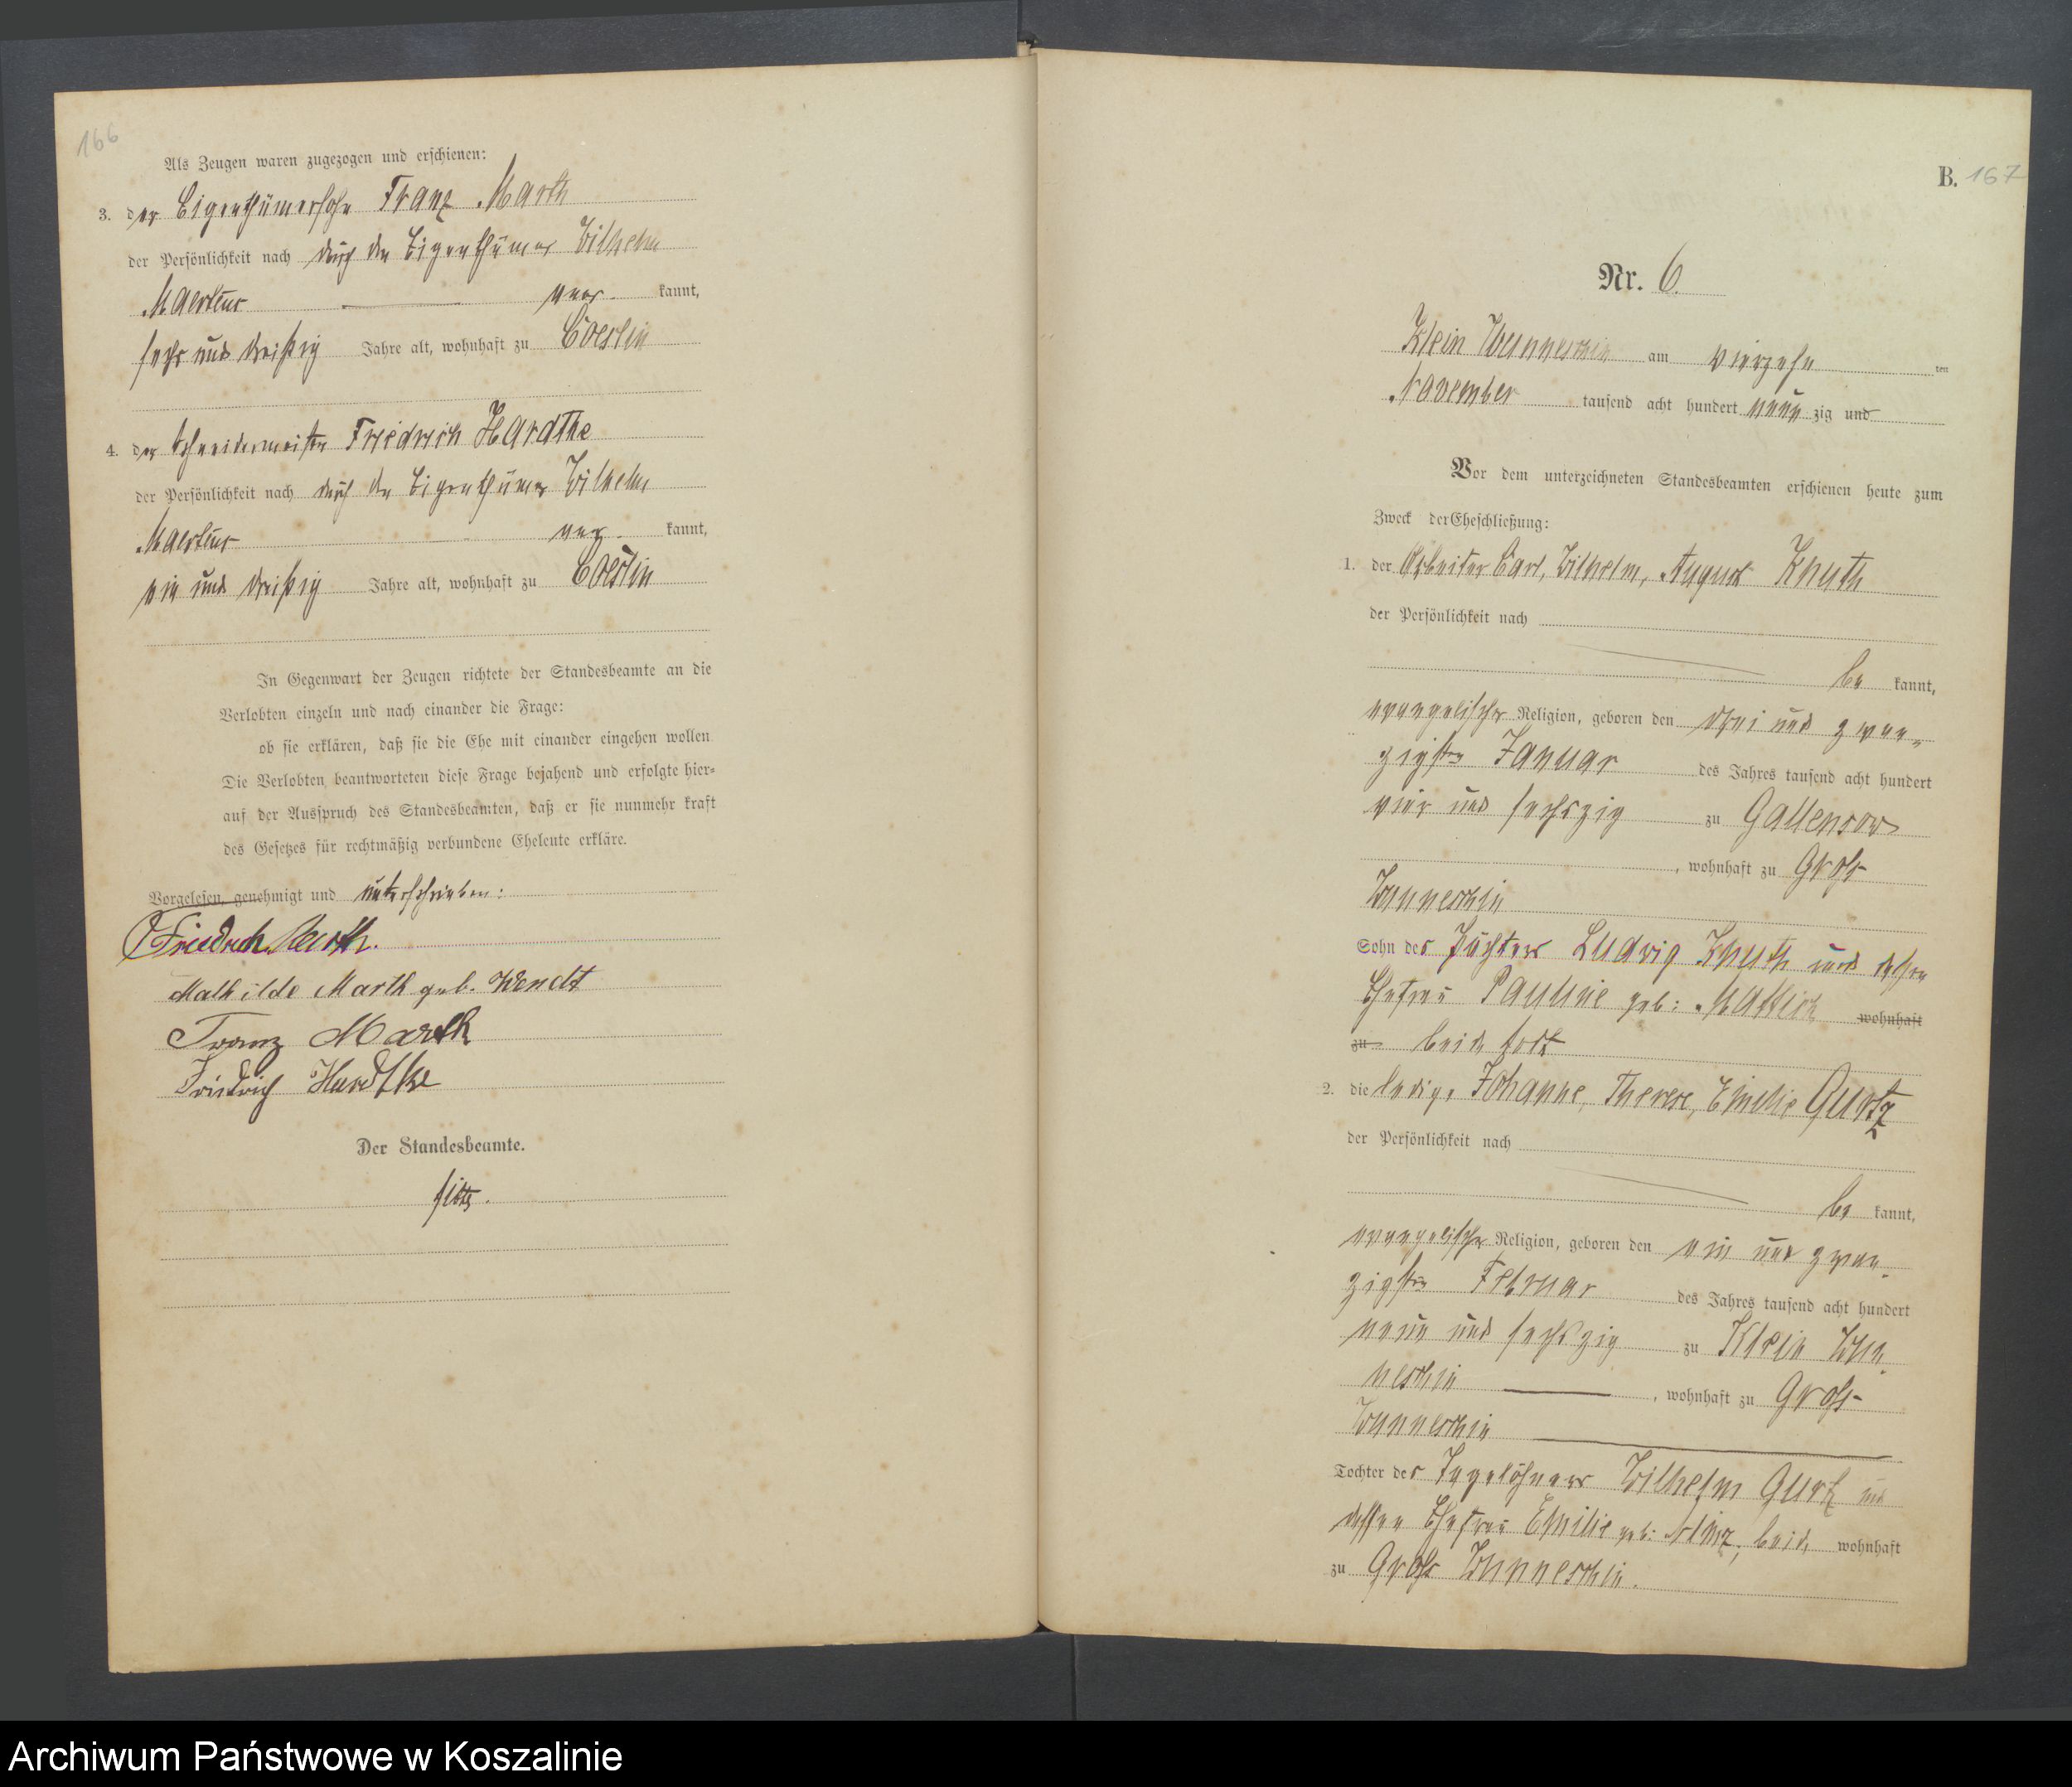 166
Als Zeugen waren zugezogen und erschienen:
3. der Eigenthümersohn Franz Marth
der Persönlichkeit nach durch den Eigenthümer Wilhelm
Maertens aner kannt,
sechs und dreißig Jahre alt, wohnhaft zu Coeslin
4. der Schneidermeister Friedrich Hardtke
der Persönlichkeit nach durch den Eigenthümer Wilhelm
Maertens aner kannt,
ein und dreißig Jahre alt, wohnhaft zu Coeslin
In Gegenwart der Zeugen richtete der Standesbeamte an die
Verlobten einzeln und nach einander die Frage:
ob sie erklären, daß sie die Ehe mit einander eingehen wollen
Die Verlobten beantworteten diese Frage bejahend und erfolgte hier-
auf der Ausspruch des Standesbeamten, daß er sie nunmehr kraft
des Gesetzes für rechtmäßig verbundene Eheleute erkläre.
Vorgelesen, genehmigt und unterschrieben:
Friedrich Marth.
Mathilde Marth geb. Wendt
Franz Marth
Friedrich Hardtke
Der Standesbeamte.
B. 167
Nr. 6.
Klein Wunneschin am vierzehn ten
November tausend acht hundert neun zig und
Vor dem unterzeichneten Standesbeamten erschienen heute zum
Zweck der Eheschließung:
1. der Arbeiter Carl, Wilhelm, August Knuth
der Persönlichkeit nach
be kannt,
evangelischer Religion, geboren den drei und zwan-
zigsten Januar des Jahres tausend acht hundert
vier und sechszig zu Gallensow
, wohnhaft zu Groß-
Wunneschin
Sohn des Pächters Ludwig Knuth und dessen
Ehefrau Pauline geb: wohnhaft
zu beide todt
2. die ledige Johanne, Therese, Emilie Gurtz
der Persönlichkeit nach
be kannt,
evangelischer Religion, geboren den ein und zwan-
zigsten Februar des Jahres tausend acht hundert
neun und sechszig zu Klein Wun-
neschin , wohnhaft zu Groß-
Wunneschin
Tochter des Tagelöhners Wilhelm Gurtz und
dessen Ehefrau Emilie geb: beide wohnhaft
zu Groß Wunneschin.
Archiwum Państwowe w Koszalinie